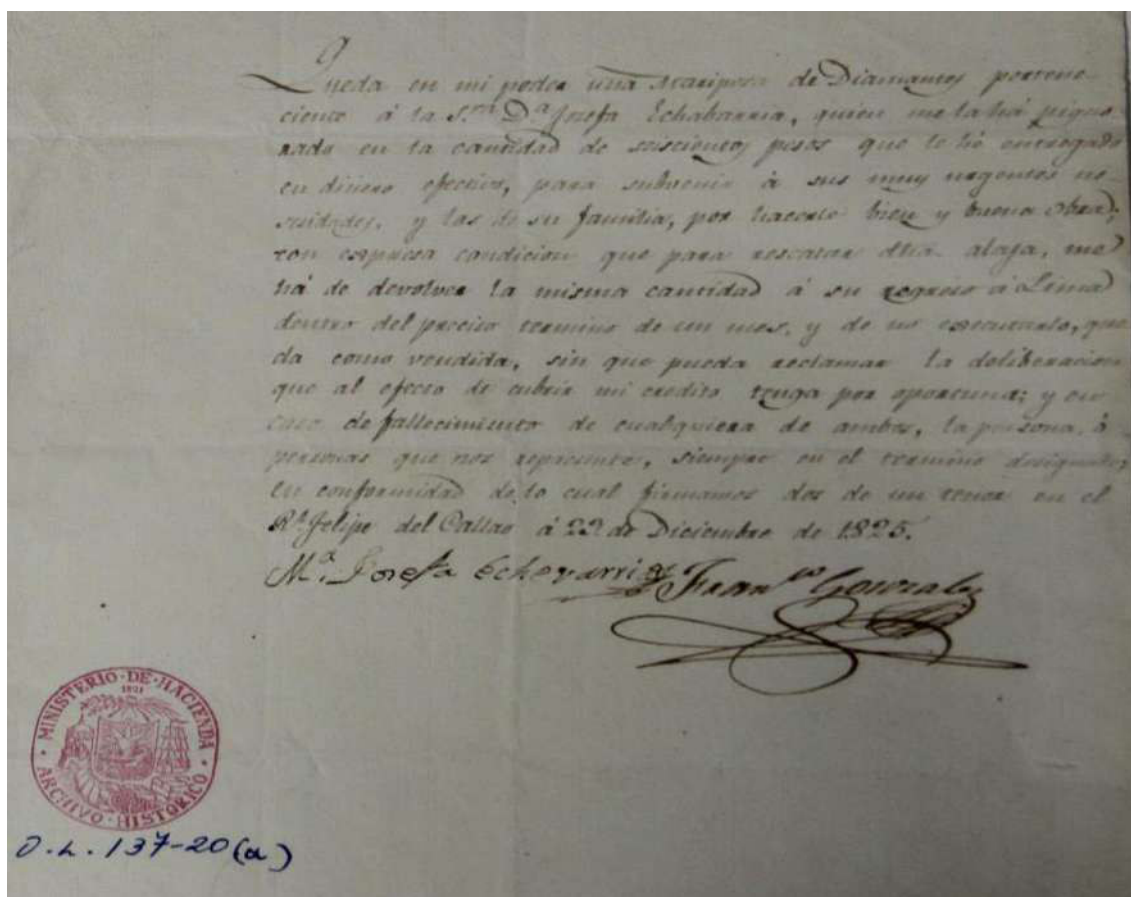 Queda en mi poder una Mariposa de Diamantes pertene-
ciente á la S.ra D.a Josefa Echabarria, quien me la há pigno-
rado en la cantidad de seiscientos pesos que le hé entregado
en dinero efectivo, para subvenir á sus muy urgentes ne-
cesidades, y las de su familia, por hacerle bien y buena obra;
con expresa condicion que para rescatar dha. alaja, me
há de devolver la misma cantidad á su regreso á Lima
dentro del preciso termino de un mes, y de no executarlo, que-
da como vendida, sin que pueda reclamar la deliberacion
que al efecto de cubrir mi credito tenga por oportuna; y en
caso de fallecimiento de cualquiera de ambos, la persona, ó
personas que nos represente, siempre en el termino designado;
en conformidad de lo cual firmamos dos de un tenor en el
R.l Felipe del Callao á 29 de Diciembre de 1825.
M.a Josefa Echevarria Fran.co Gonzales
MINISTERIO·DE·HACIENDA
1821
ARCHIVO·HISTORICO
O.L. 137-20(a)